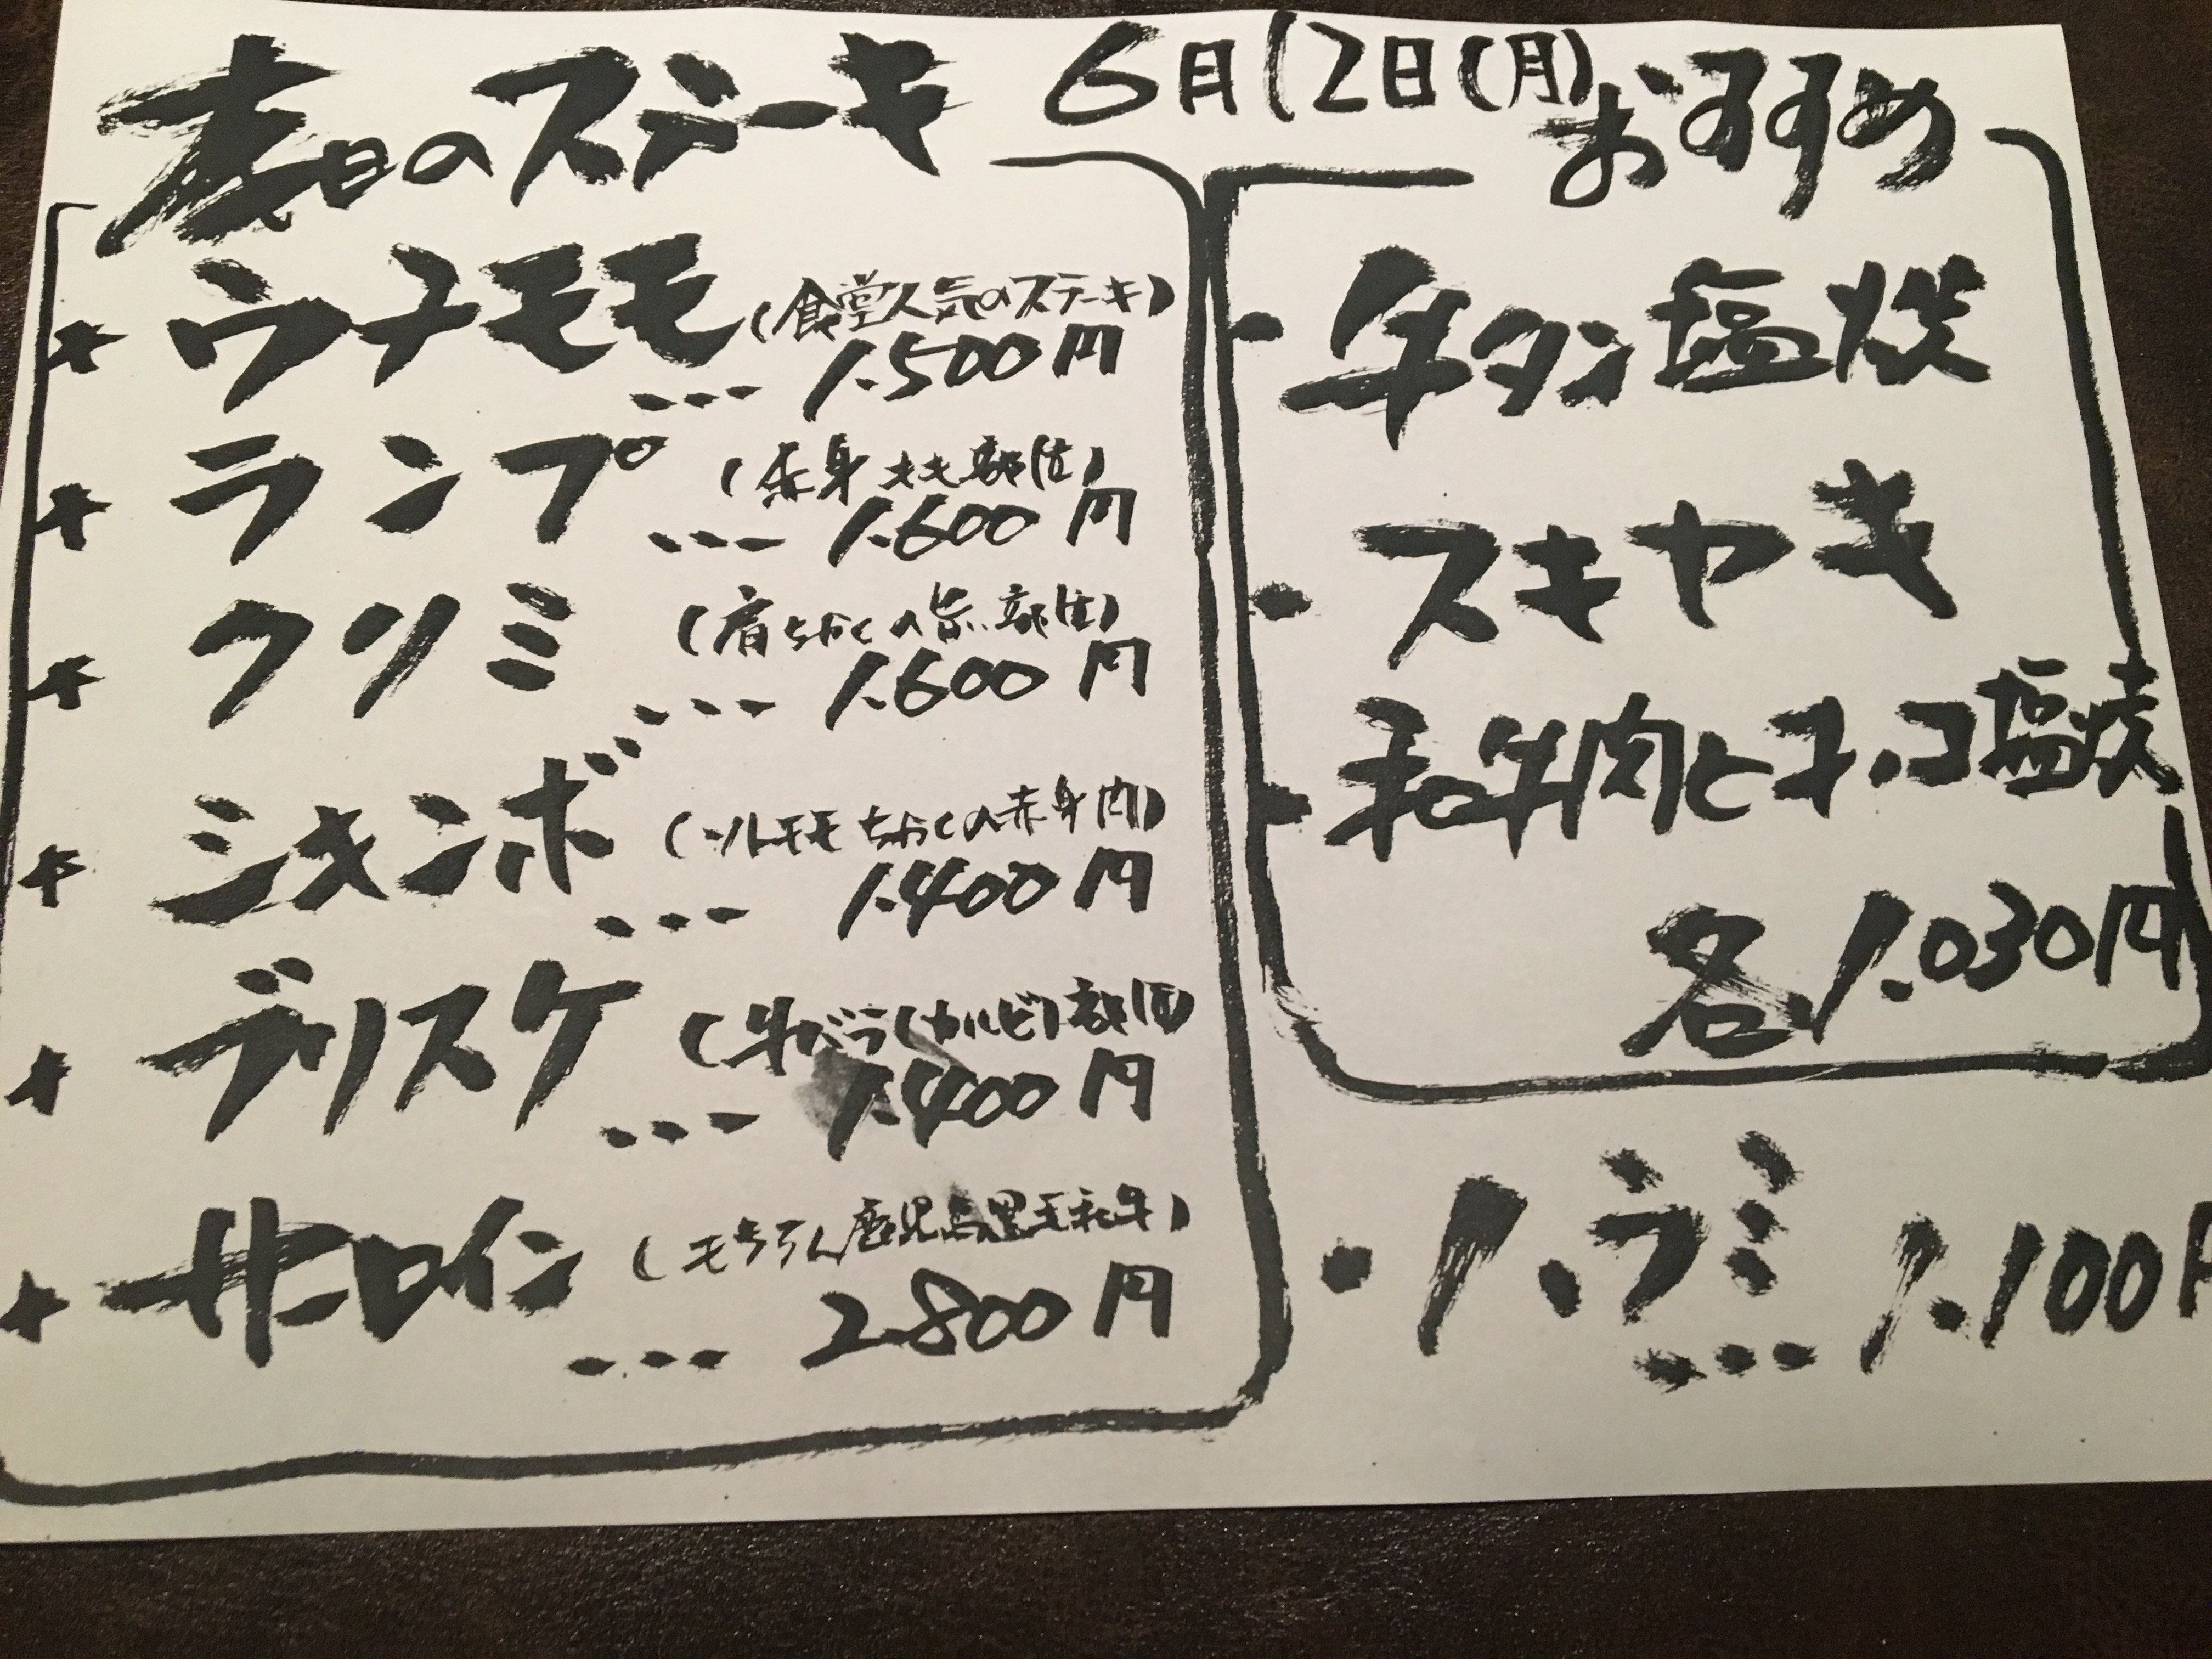 本日のステーキ 6月12日(月)
ウチモモ(食堂人気のステーキ)
... 1.500円
ランプ(赤身 モモ部位)
... 1.600円
クリミ(肩ちかくの旨い部位)
... 1.600円
シキンボ(ソトモモちかくの赤身肉)
... 1.400円
ブリスケ(牛バラ(カルビ)部位)
... 1.400円
サーロイン(モちろん鹿児島黒毛和牛)
... 2.800円
おすすめ
・牛タン塩焼
・スキヤキ
・和牛肉とキノコ塩焼
各、1.030円
・ハラミ
... 1.100